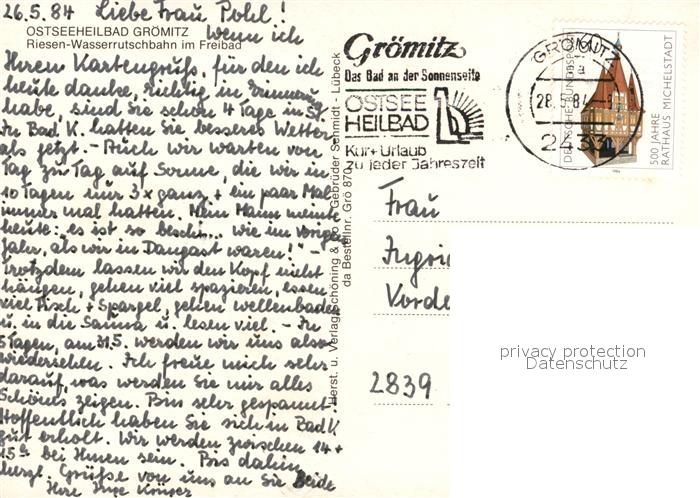 26.5.84 Liebe Frau Pohl!
OSTSEEHEILBAD GRÖMITZ
Riesen-Wasserrutschbahn im Freibad
Wenn ich
Ihren Kartengruß, für den ich
heute danke, richtig in Erinnerung
habe, sind Sie schon 4 Tage in St.
In Bad K. hatten Sie besseres Wetter
als jetzt. - Auch wir warten von
Tag zu Tag auf Sonne, die wir in
10 Tagen nur 3x ganz, + ein paar Mal
immer mal hatten. Mein Mann meinte
heute: "es ist so besch... wie im vorigen
Jahr, als wir in Dangast waren!" -
Trotzdem lassen wir den Kopf nicht
hängen, gehen viel spazieren, essen
viel Fisch + Spargel, gehen wellenbaden
u. in die Sauna u. lesen viel. - In
5 Tagen, am 31.5. werden wir uns also
wiedersehen. Ich freue mich sehr
darauf, was werden Sie mir alles
Schönes zeigen. Bin sehr gespannt.
Hoffentlich haben Sie sich in Bad K
gut erholt. Wir werden zwischen 14 +
15h bei Ihnen sein. Bis dahin
herzl. Grüße von uns an Sie Beide
Ihre Inge Krüger
Herst. u. Verlag Schöning & Co + Gebrüder Schmidt - Lübeck
da Bestellnr. Grö 870
Grömitz
Das Bad an der Sonnenseite
OSTSEE
HEILBAD
Kur + Urlaub
zu jeder Jahreszeit
GRÖMITZ
a
28.5.84
2433
DEUTSCHE BUNDESPOST
500 JAHRE
RATHAUS MICHELSTADT
Frau
Ingri
Vorde
2839
privacy protection
Datenschutz